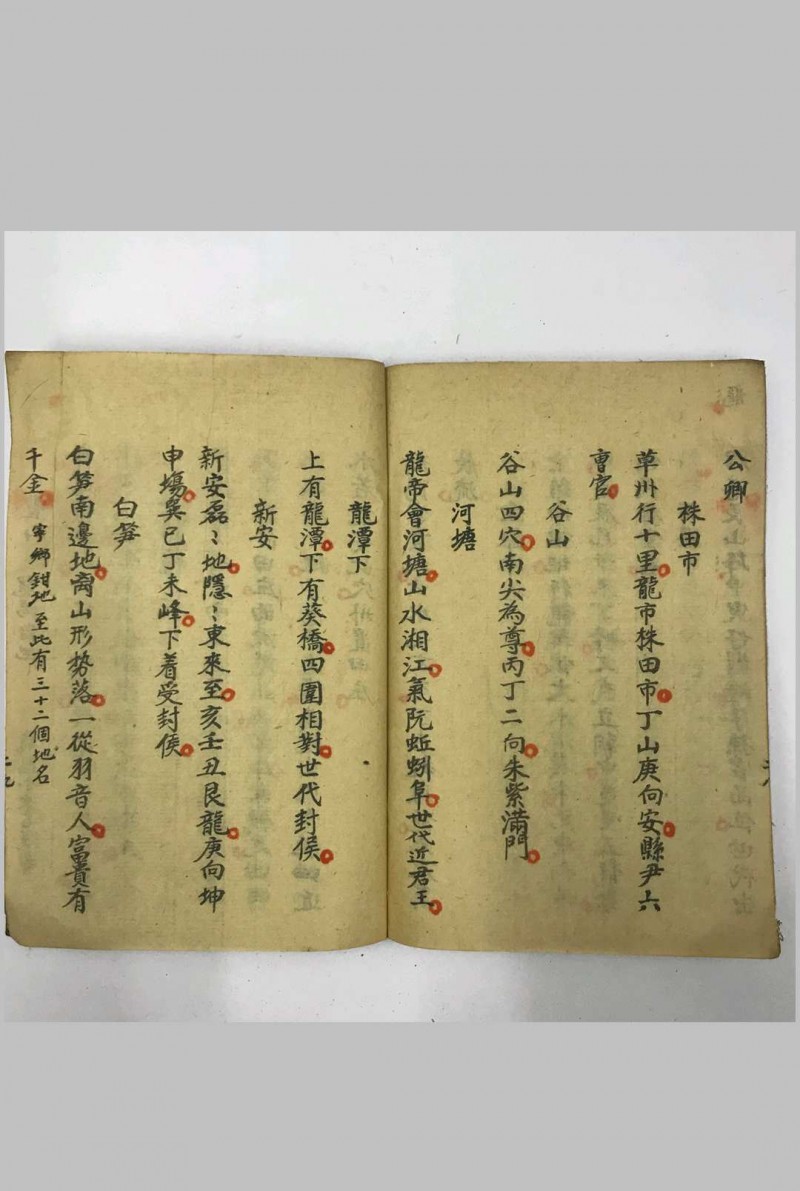 公卿
株田市
草州行十里龍市株田市丁山庚向安縣尹六
曹官
谷山
谷山四穴南尖為尊丙丁二向朱紫滿門
河塘
龍帝會河塘山水湘江氣阮蚯蚓阜世代近君王
龍潭下
上有龍潭下有葵橋四圍相對世代封侯
新安
新安磊〻地隱〻東來至亥壬丑艮龍庚向坤
申塲巽巳丁未峰下着受封侯
白笋
白笋南邊地离山形勢落一從羽音人富貴有
千金
寧鄉鉗地至此有三十二個地名